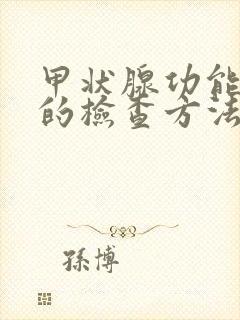 甲状腺功能
的檢查方法
孫博